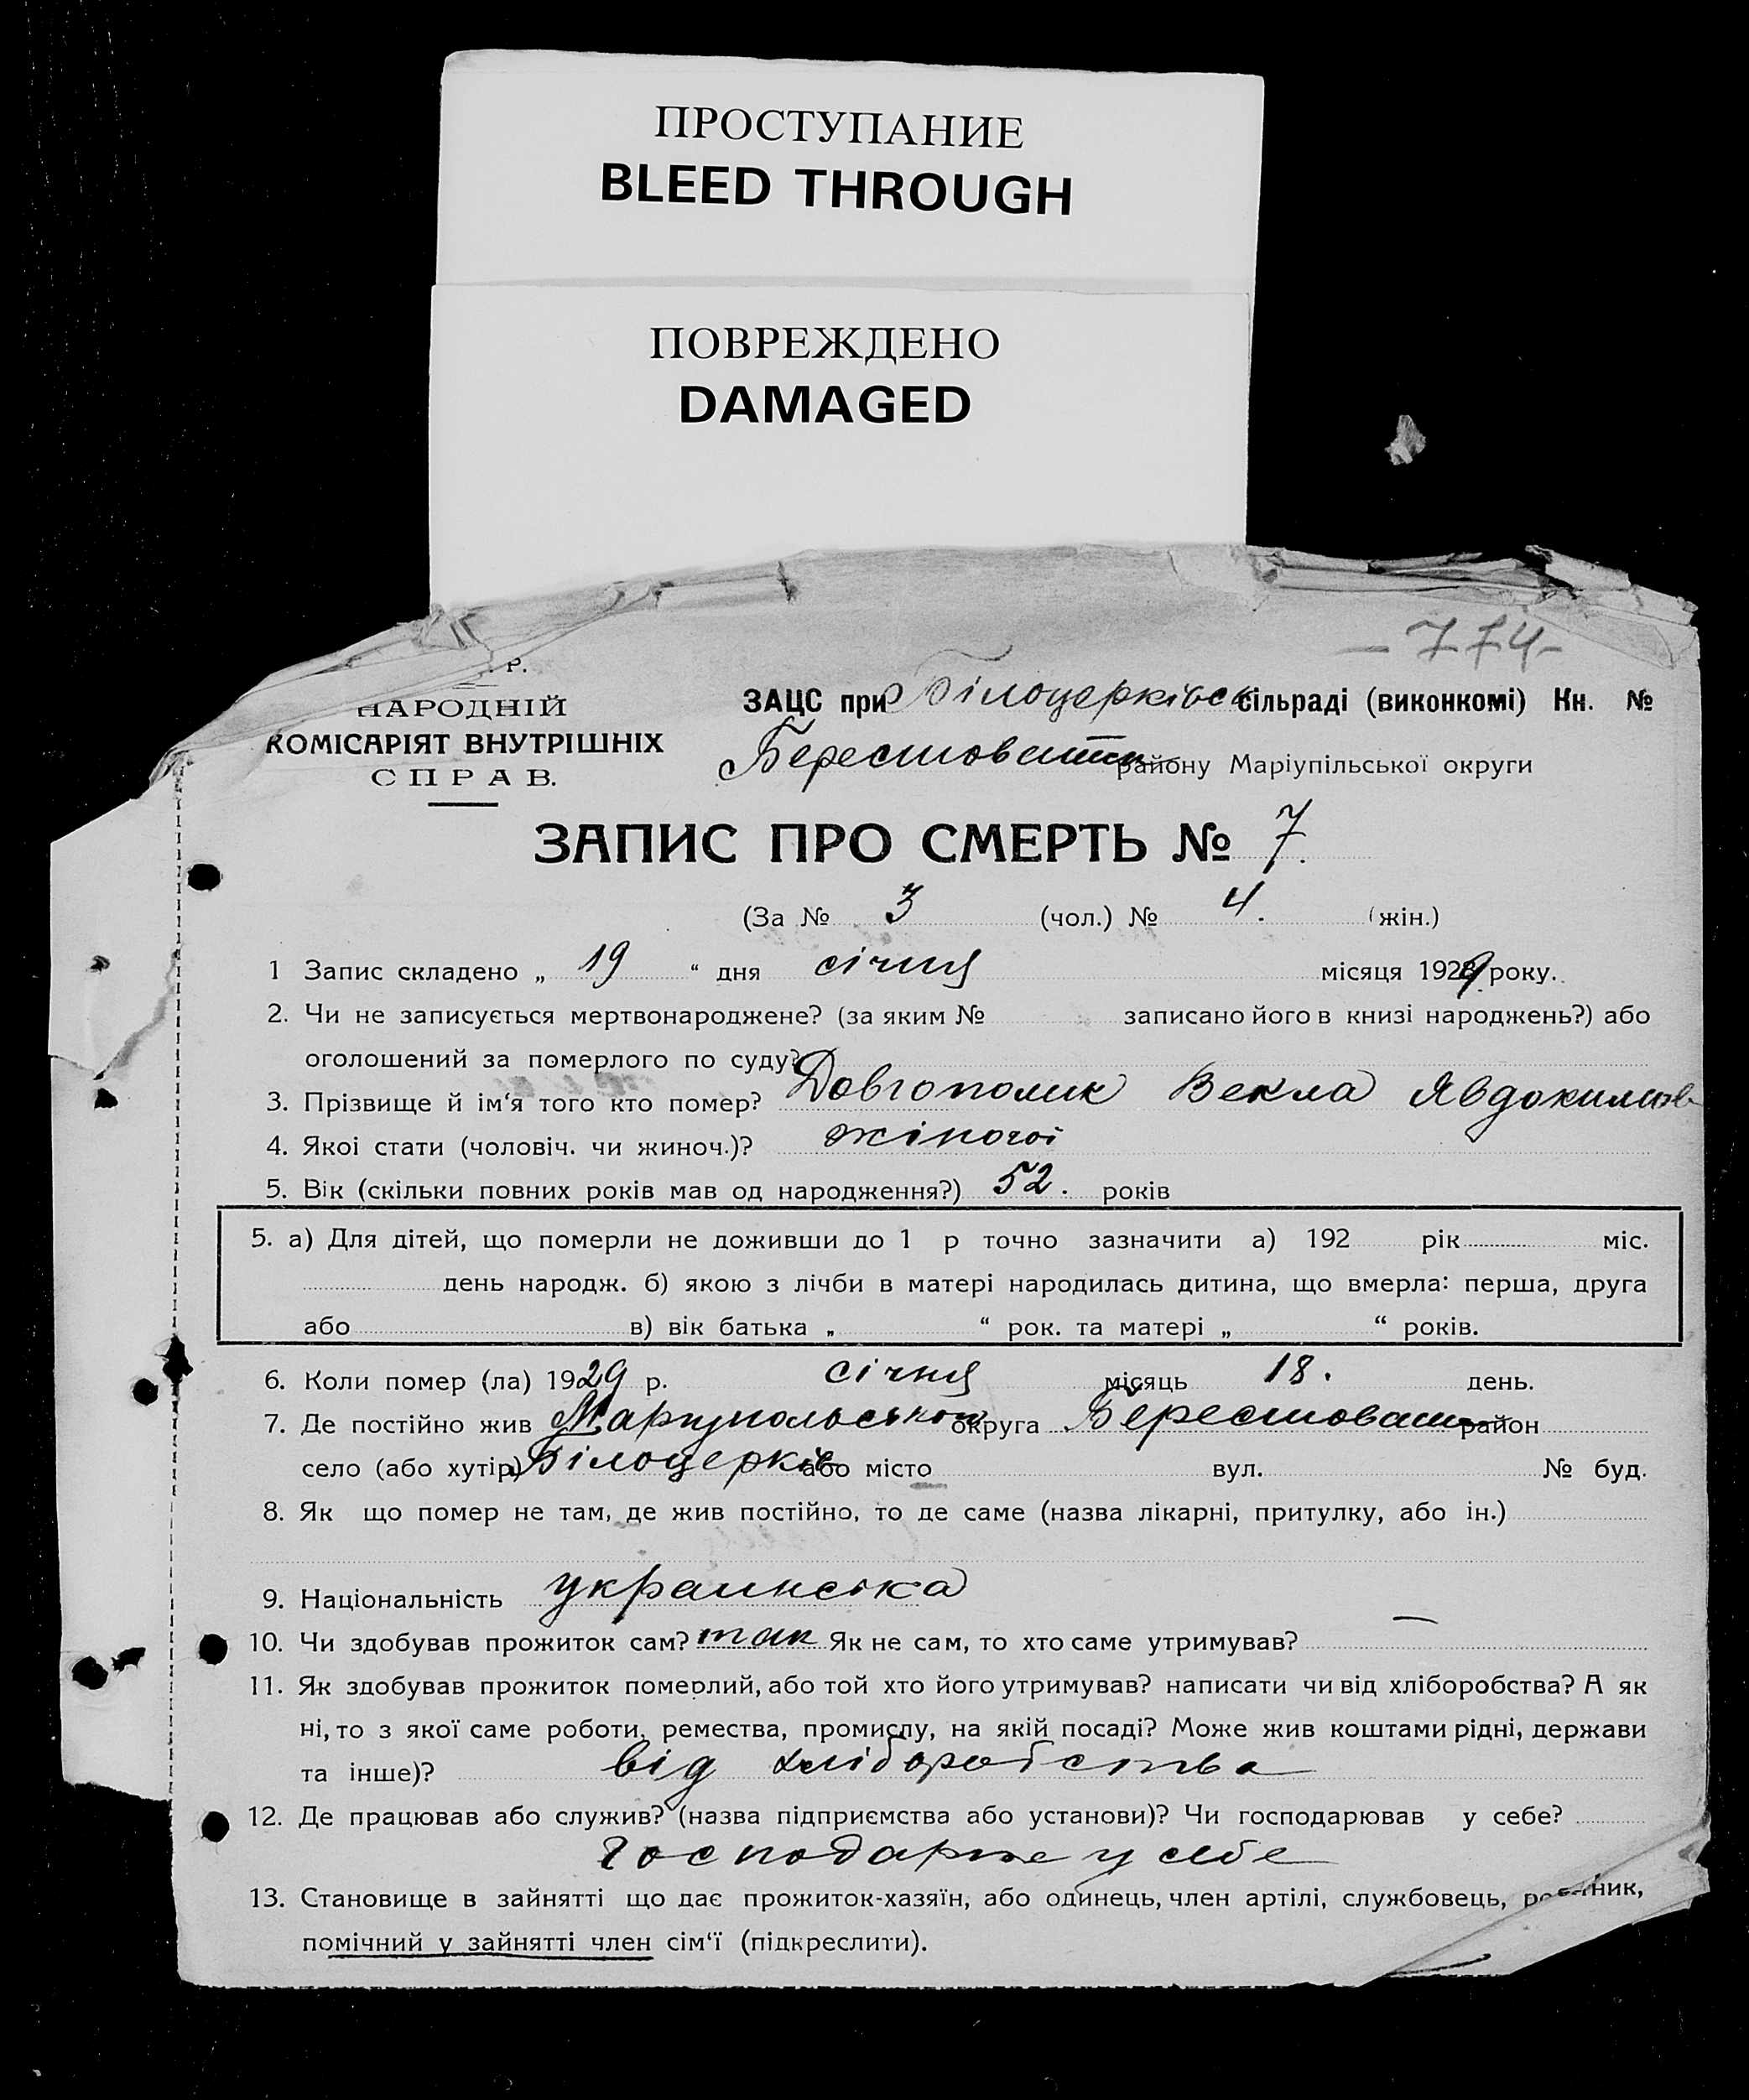 ПРОСТУПАНИЕ
BLEED THROUGH
ПОВРЕЖДЕНО
DAMAGED
-774-
Р.
НАРОДНІЙ
КОМІСАРІЯТ ВНУТРІШНІХ
СПРАВ.
ЗАЦС при Білоцерківсь сільраді (виконкомі) Кн. №
Берестоват району Маріупільської округи
ЗАПИС ПРО СМЕРТЬ № 7.
(За № 3 (чол.) № 4. (жін.)
1 Запис складено „ 19 “ дня січня місяця 1929 року.
2. Чи не записується мертвонароджене? (за яким № записано його в книзі народжень?) або
оголошений за померлого по суду?
3. Прізвище й ім‘я того кто помер? Довгополик Векла Явдокимов
4. Якоі стати (чоловіч. чи жиноч.)? жіночоі
5. Вік (скільки повних років мав од народження?) 52. років
5. а) Для дітей, що померли не доживши до 1 р точно зазначити а) 192 рік міс.
день народж. б) якою з лічби в матері народилась дитина, що вмерла: перша, друга
або в) вік батька „ “ рок. та матері „ “ років.
6. Коли помер (ла) 1929 р. січня місяць 18. день.
7. Де постійно жив Маріупольськои округа Берестоват район
село (або хутір) Білоцерків або місто вул. № буд.
8. Як що помер не там, де жив постійно, то де саме (назва лікарні, притулку, або ін.)
9. Національність украинська
10. Чи здобував прожиток сам? так Як не сам, то хто саме утримував? —
11. Як здобував прожиток померлий, або той хто його утримував? написати чи від хліборобства? А як
ні, то з якої саме роботи, ремества, промислу, на якій посаді? Може жив коштами рідні, держави
та інше)? від хліборобства
12. Де працював або служив? (назва підприємства або установи)? Чи господарював у себе?
Господарює у себе
13. Становище в зайнятті що дає прожиток-хазяїн, або одинець, член артілі, службовець, робітник,
помічний у зайнятті член сім‘ї (підкреслити).